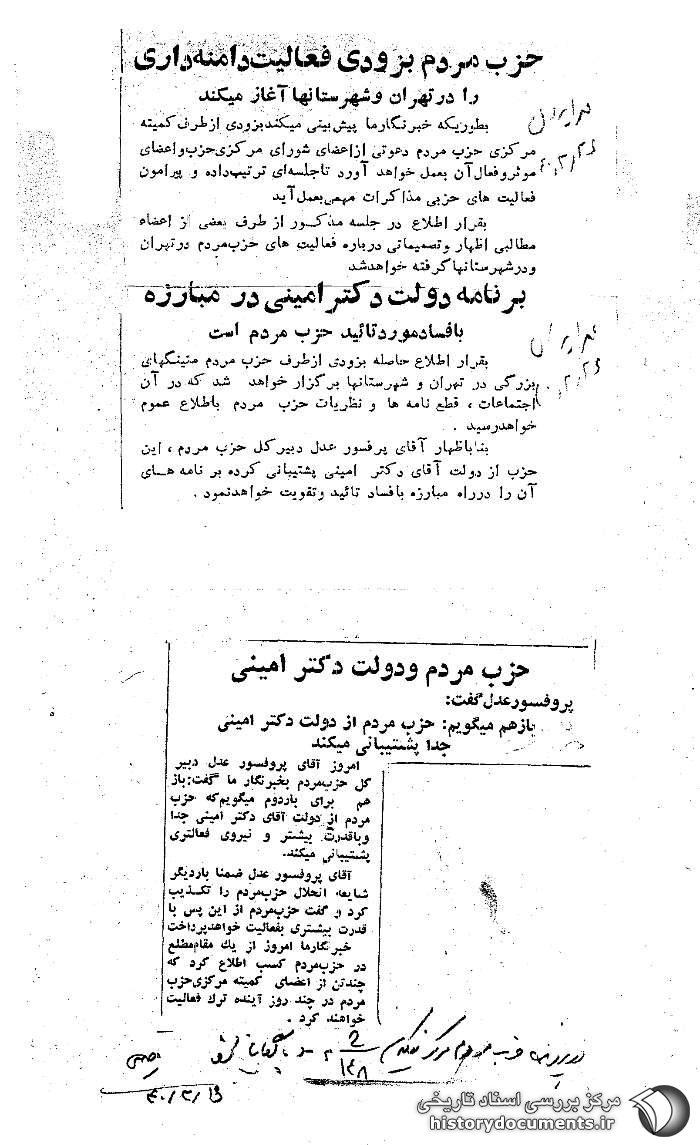 حزب مردم بزودی فعالیت‌دامنه‌داری
را درتهران وشهرستانها آغاز میکند
بطوریکه خبرنگارما پیش‌بینی میکندبزودی ازطرف کمیته
مرکزی حزب مردم دعوتی ازاعضای شورای مرکزی‌حزب‌واعضای
موثروفعال‌آن بعمل خواهد آورد تاجلسه‌ای ترتیب‌داده و پیرامون
فعالیت های حزبی مذاکرات مهمی‌بعمل‌آید
بقرار اطلاع در جلسه مذکور از طرف بعضی از اعضاء
مطالبی اظهار وتصمیماتی درباره فعالیت های حزب‌مردم درتهران
ودرشهرستانهاگرفته خواهدشد
برنامه دولت دکتر امینی در مبارزه
بافسادموردتائید حزب مردم است
بقرار اطلاع حاصله بزودی ازطرف حزب مردم متینگهای
بزرگی در تهران و شهرستانها برگزار خواهد شد که در آن
اجتماعات ، قطع نامه ها و نظریات حزب مردم باطلاع عموم
خواهدرسید .
بناباظهار آقای پرفسور عدل دبیرکل حزب مردم ، این
حزب از دولت آقای دکتر امینی پشتیبانی کرده برنامه های
آن را درراه مبارزه بافساد تائید وتقویت خواهدنمود .
حزب مردم ودولت دکتر امینی
پروفسورعدل‌گفت:
بازهم میگویم: حزب مردم از دولت دکتر امینی
جدا پشتیبانی میکند
امروز آقای پروفسور عدل دبیر
کل حزب‌مردم بخبرنگار ما گفت: باز
هم برای باردوم میگویم‌که حزب
مردم از دولت آقای دکتر امینی جدا
وباقدرت بیشتر و نیروی فعالتری
پشتیبانی میکند.
آقای پروفسور عدل ضمنا باردیگر
شایعه انحلال حزب‌مردم را تکذیب
کرد و گفت حزب‌مردم از این پس با
قدرت بیشتری بفعالیت خواهدپرداخت
خبرنگارما امروز از یك مقام‌مطلع
در حزب‌مردم کسب اطلاع کرد که
چندتن از اعضای کمیته مرکزی‌حزب
مردم در چند روز آینده ترك فعالیت
خواهند کرد .
۴۰/۳/۱۶
مرکز بررسی اسناد تاریخی
historydocuments.ir